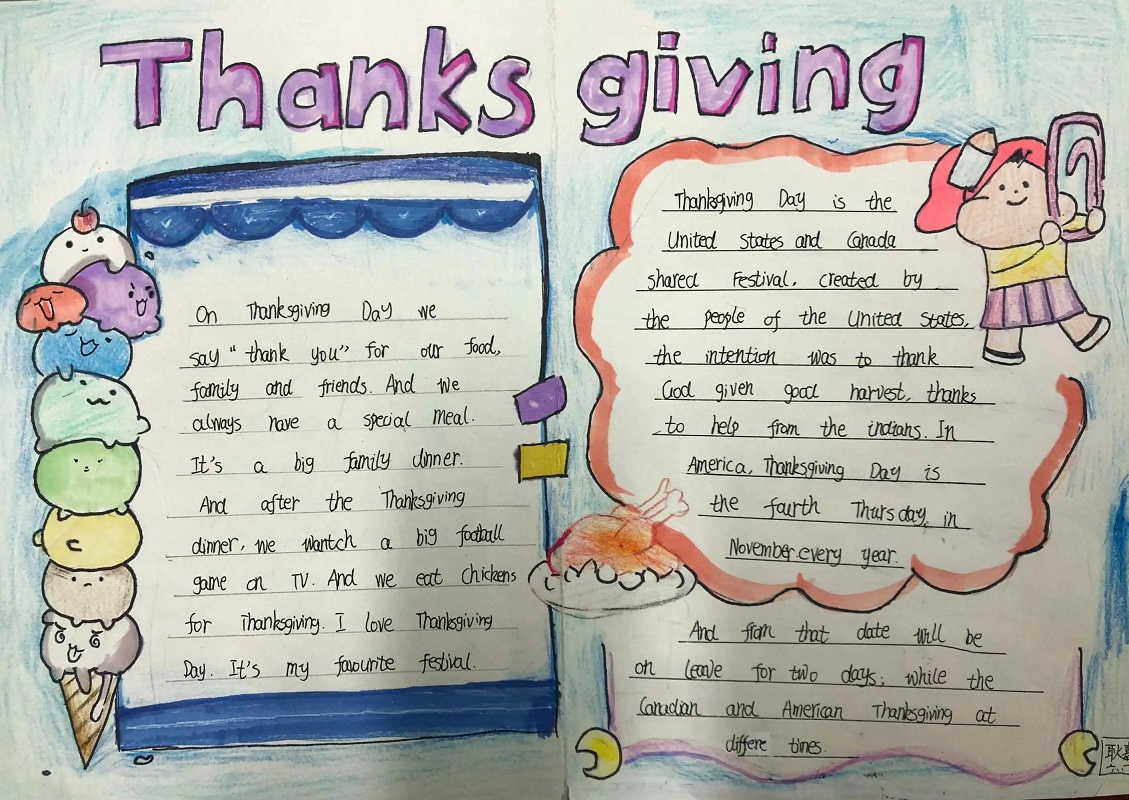 Thanks giving
On Thanksgiving Day we
say " thank you" for our food,
family and friends. And we
always have a special meal.
It's a big family dinner.
And after the Thanksgiving
dinner, we wantch a big football
game on TV. And we eat chickens
for Thanksgiving. I love Thanksgiving
Day. It's my favourite festival.
Thanksgiving Day is the
United States and Canada
shared Festival, created by
the people of the United States,
the intention was to thank
God given good harvest, thanks
to help from the indians. In
America, Thanksgiving Day is
the fourth Thursday, in
November.every year.
And from that date will be
on leave for two days; while the
Canadian and American Thanksgiving at
differe times.
耿